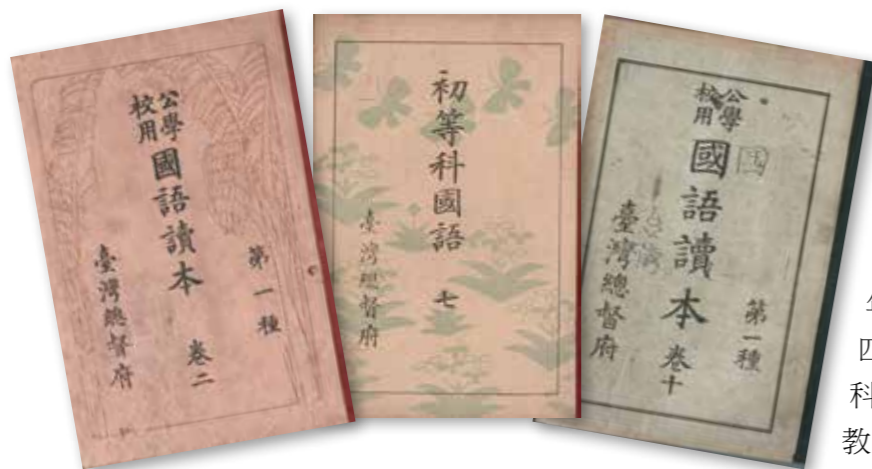 公學校用
國語讀本
卷二
第一種
臺灣總督府
初等科國語
七
臺灣總督府
公學校用
國語讀本
卷十
第一種
臺灣總督府
四
科
教